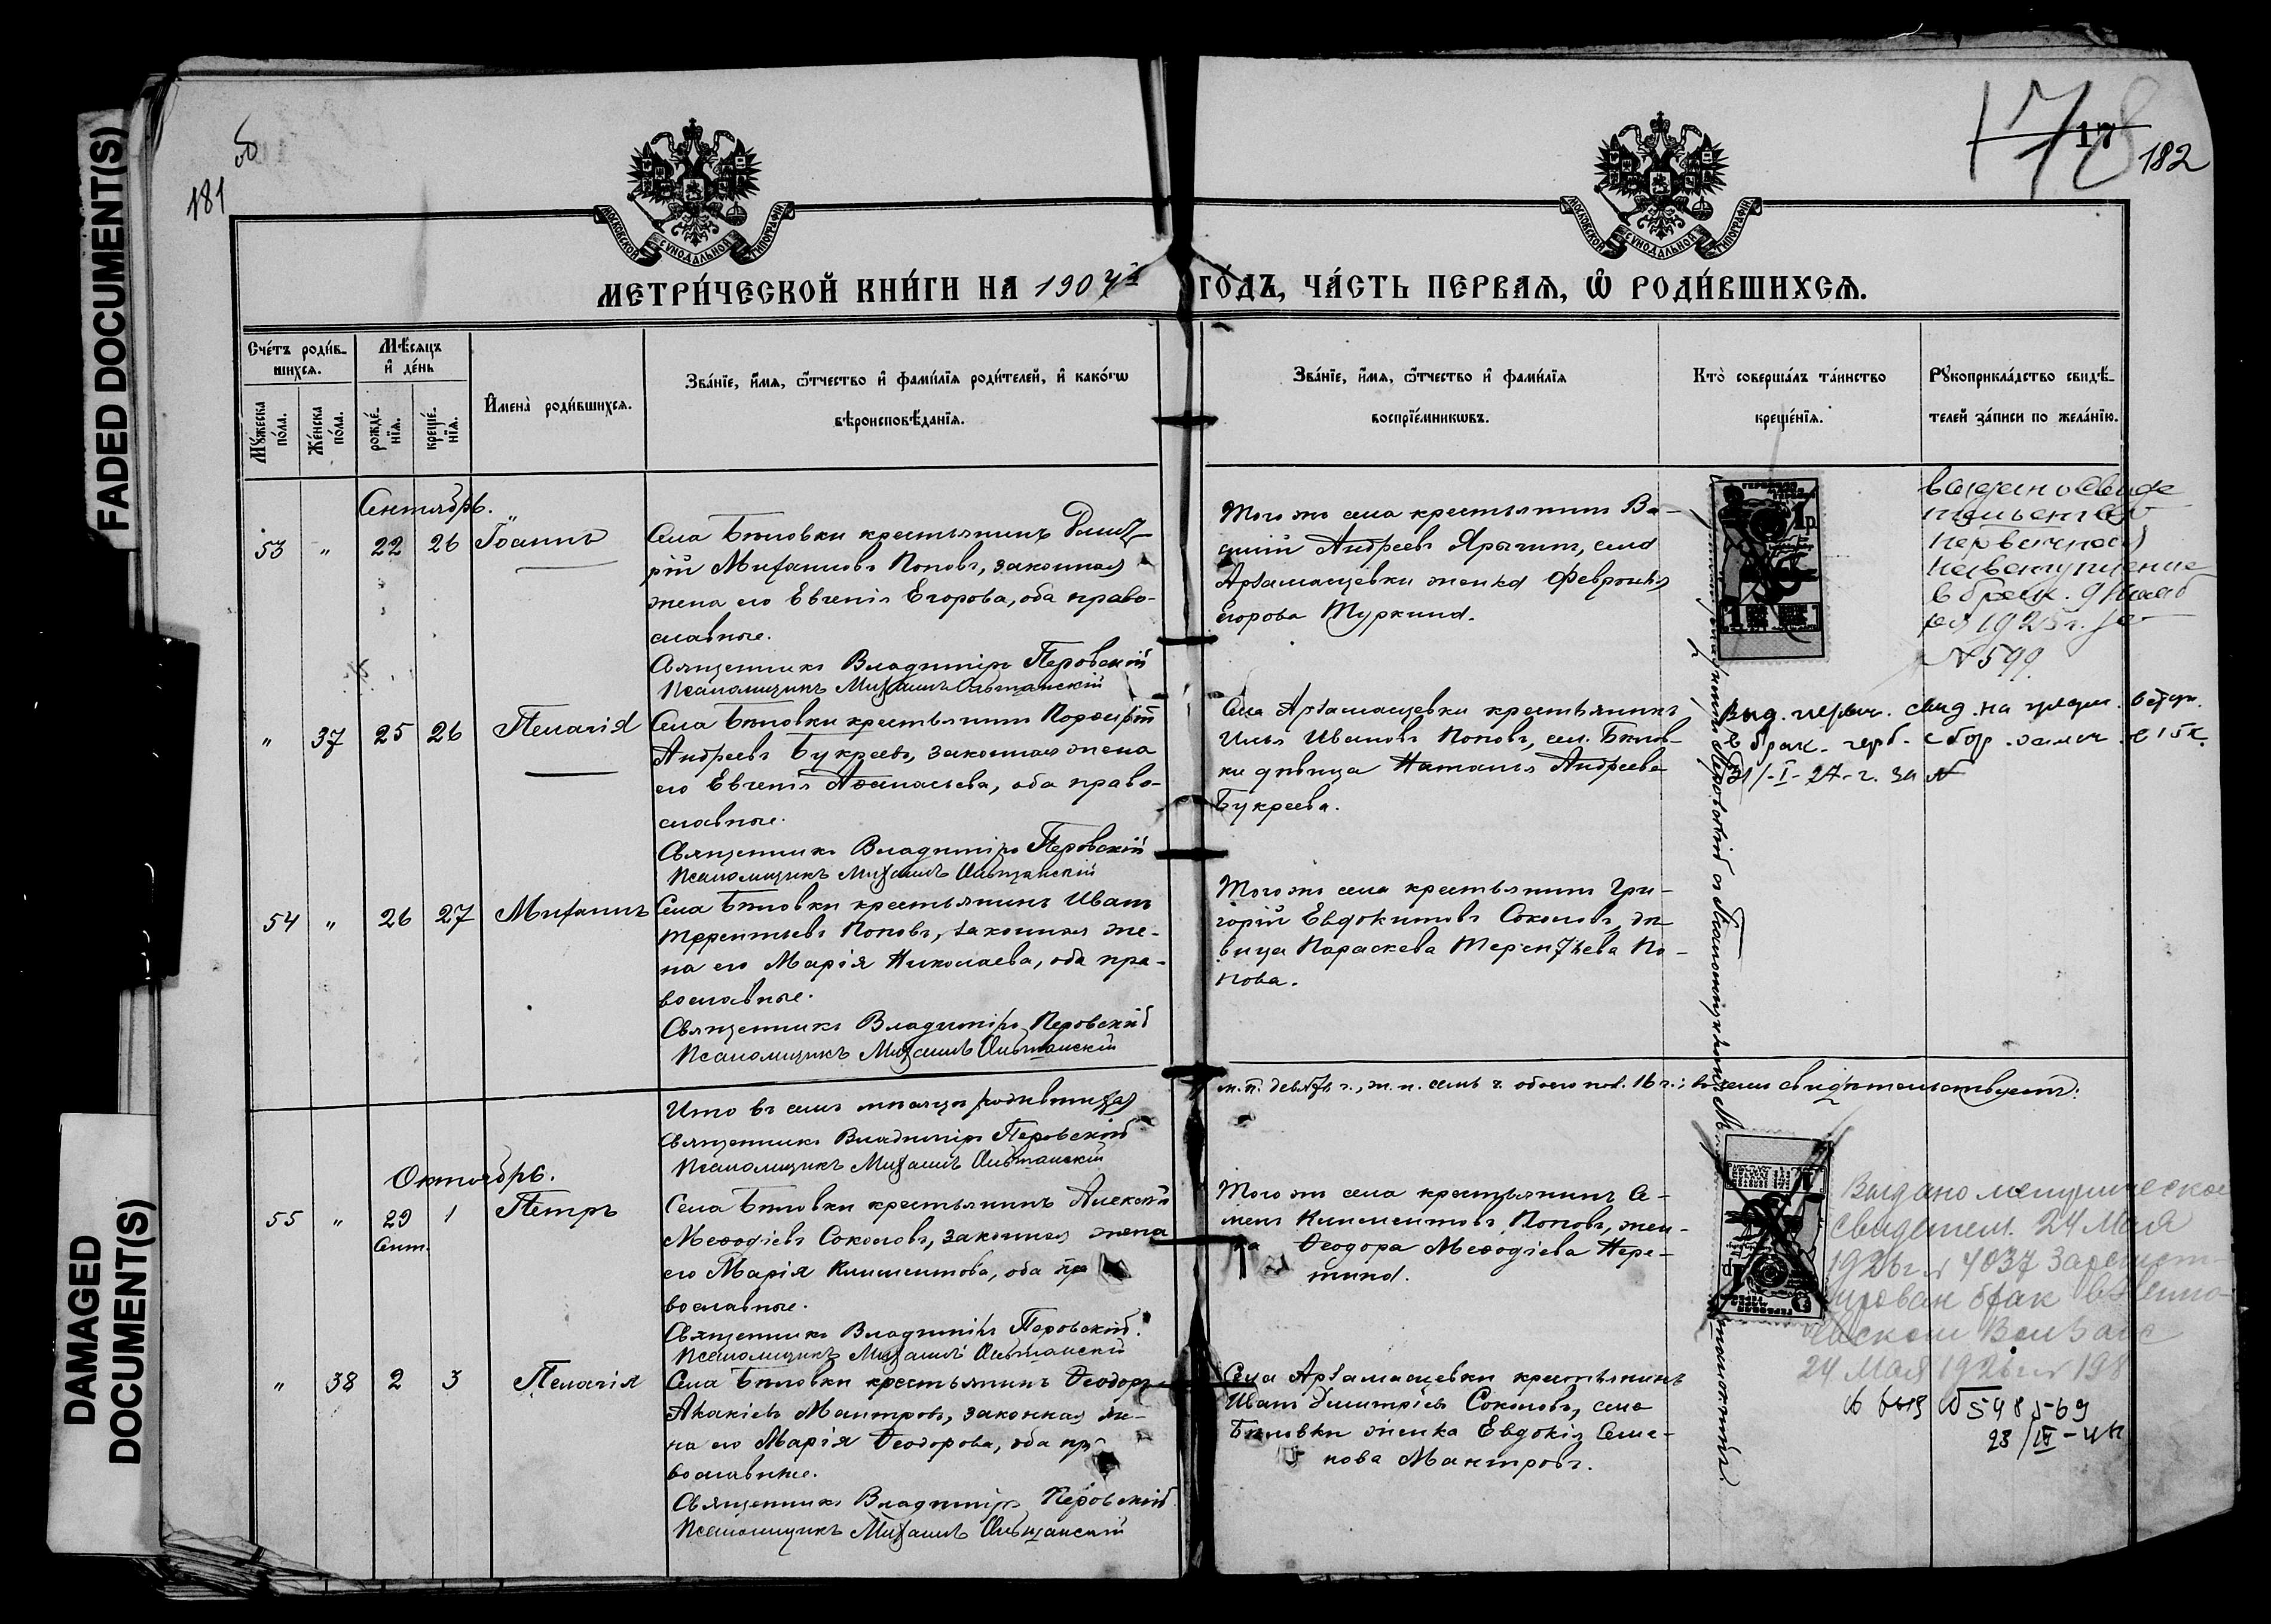 FADED DOCUMENT(S)
DAMAGED
DOCUMENT(S)
181
17
178
182
МОСКОВСКОЙ СѴНОДАЛЬНОЙ ТИПОГРАФІИ
МОСКОВСКОЙ СѴНОДАЛЬНОЙ ТИПОГРАФІИ
МЕТРИ́ЧЕСКОЙ КНИ́ГИ НА 1907й ГО́ДЪ, ЧА́СТЬ ПЕРВАѦ, Ѽ РОДИ́ВШИХСѦ.
Сче́тъ роди́в-
шихсѧ.
Мꙋ́жеска по́ла.
Же́нска по́ла.
Мѣ́сѧцъ
и҆ де́нь
рожде́-нїѧ.
креще́-нїѧ.
И҆мена̀ роди́вшихсѧ.
Зва́нїе, и҆́мѧ, ѻ҆́тчество и҆ фами́лїѧ роди́телей, и҆ како́гѡ
вѣроисповѣ́данїѧ.
Зва́нїе, и҆́мѧ, ѻ҆́тчество и҆ фами́лїѧ
воспрїе́мникѡвъ.
Кто̀ соверша́лъ та́инство
креще́нїѧ.
Рꙋкоприкла́дство свидѣ́-
телей за́писи по жела́нїю.
Сентябрь.
53 " 22 26 Іоаннъ
Села Бѣловки крестьянинъ Дмит-
рій Михаиловъ Поповъ, законная
жена его Евгенія Егорова, оба право-
славные.
Священникъ Владиміръ Перовскій
Псаломщикъ Михаилъ Ольшанскій
Того же села крестьянинъ Ва-
силій Андреевъ Ярыгинъ, села
Арзамасцевки женка Февронія
Егорова Туркина.
выдано свиде
на вступление
в брак. 9 Нояб
ря 1925 г. за
№ 599
" 37 25 26 Пелагія
Села Бѣловки крестьянинъ Порфирій
Андреевъ Букреевъ, законная жена
его Евгенія Аѳанасьева, оба право-
славные.
Священникъ Владиміръ Перовскій
Псаломщикъ Михаилъ Ольшанскій
Села Арзамасцевки крестьянинъ
Илья Ивановъ Поповъ, сел. Бѣлов-
ки дѣвица Наталія Андреева
Букреева.
Выд. первич. свид. на предм. вступ.
в брак. герб. сбор. 15 к.
21/-I-27-г. за №
54 " 26 27 Михаилъ
Села Бѣловки крестьянинъ Иванъ
Терентьевъ Поповъ, законная же-
на его Марія Николаева, оба пра-
вославные.
Священникъ Владиміръ Перовскій
Псаломщикъ Михаилъ Ольшанскій
Того же села крестьянинъ Гри-
горій Евдокимовъ Соколовъ, дѣ-
вица Параскева Терентьева По-
пова.
Итого въ семъ мѣсяцѣ родившихся
м. п. девять ч., ж. п. семь ч. обоего пол. 16 ч.; въ чемъ свидѣтельствуемъ:
Священникъ Владиміръ Перовскій
Псаломщикъ Михаилъ Ольшанскій
Октябрь.
55 " 29 1 Петръ
Сент.
Села Бѣловки крестьянинъ Алексѣй
Меѳодіевъ Соколовъ, законная жена
его Марія Климентова, оба пра
вославные.
Священникъ Владиміръ Перовскій.
Псаломщикъ Михаилъ Ольшанскій
Того же села крестьянинъ Се-
менъ Климентовъ Поповъ, жен-
ка Ѳеодора Меѳодіева Чере-
мина.
Выдано метрическое
свидетел. 24 Мая
1926 г № 4037 Зарегист-
рирован брак
24 Мая 1926 г № 198
" 38 2 3 Пелагія
Села Бѣловки крестьянинъ Ѳеодоръ
Акакіевъ Мантровъ, законная же-
на его Марія Ѳеодорова, оба пра
вославные.
Священникъ Владиміръ Перовскій
Псаломщикъ Михаилъ Ольшанскій
Села Арзамасцевки крестьянинъ
Иванъ Димитріевъ Соколовъ, села
Бѣловки женка Евдокія Семе-
нова Мантровъ.